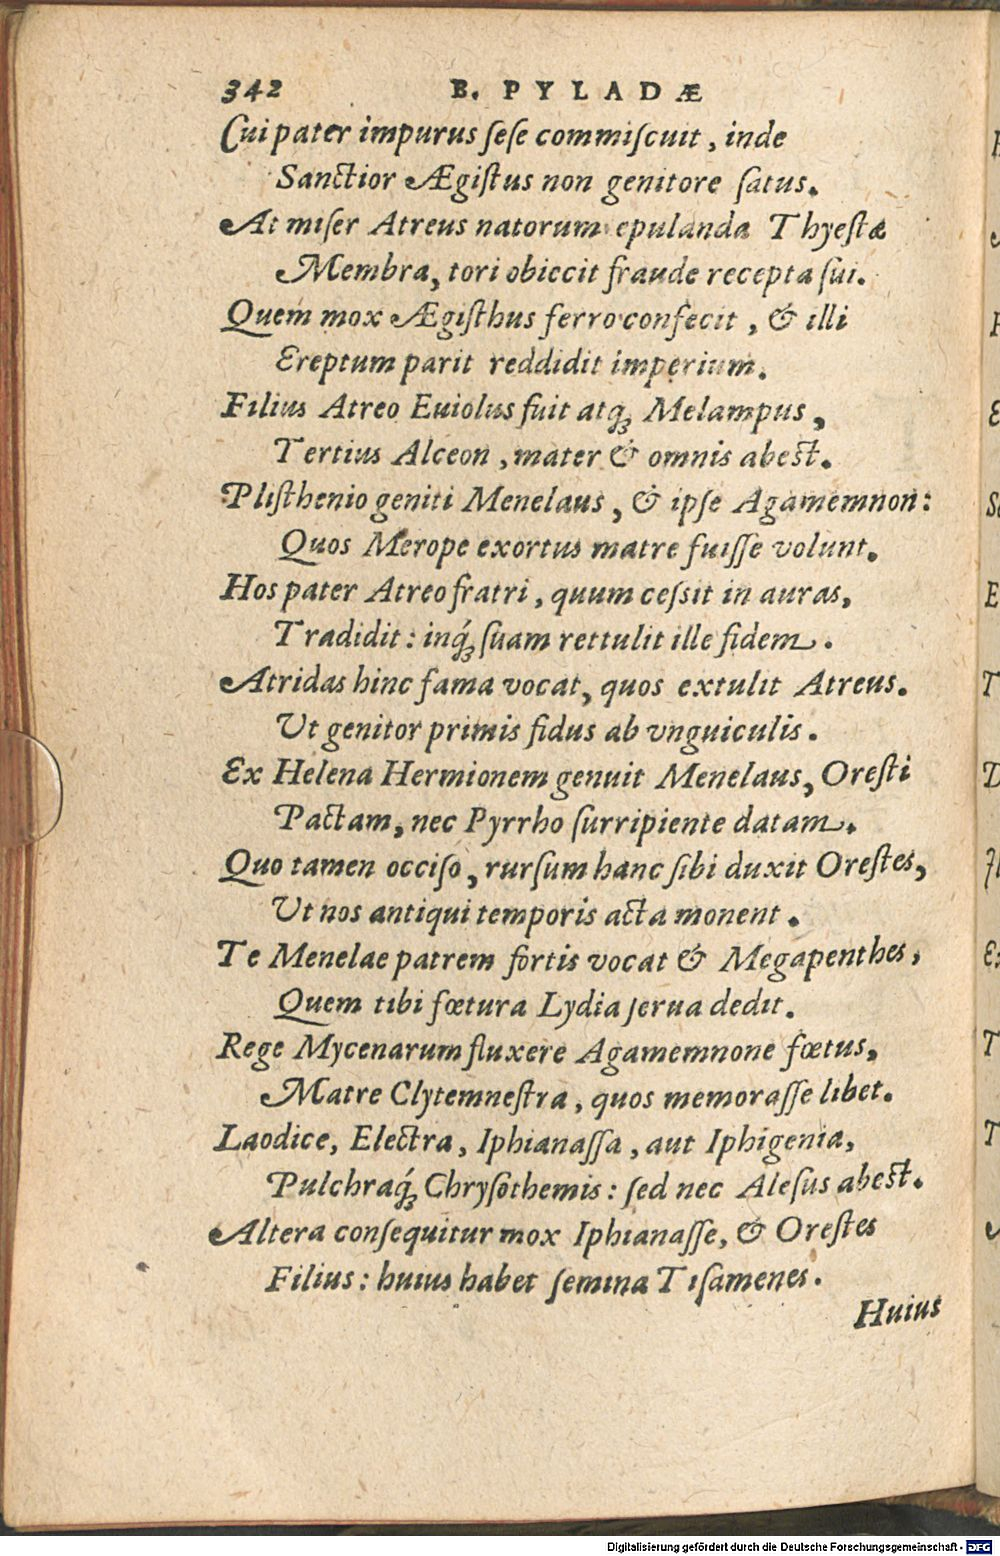 342 B. PYLADÆ
Cui pater impurus ſeſe commiſcuit, inde
Sanctior Ægiſtus non genitore ſatus.
At miſer Atreus natorum epulanda Thyeſtæ
Membra, tori obiecit fraude recepta ſui.
Quem mox Ægiſthus ferro confecit, & illi
Ereptum parit reddidit imperium.
Filius Atreo Euiolus fuit atq; Melampus,
Tertius Alceon, mater & omnis abest.
Pliſthenio geniti Menelaus, & ipſe Agamemnon:
Quos Merope exortus matre fuiſſe volunt.
Hos pater Atreo fratri, quum ceſsit in auras,
Tradidit: inq́; ſuam rettulit ille fidem.
Atridas hinc fama vocat, quos extulit Atreus.
Ut genitor primis fidus ab vnguiculis.
Ex Helena Hermionem genuit Menelaus, Oreſti
Pactam, nec Pyrrho ſurripiente datam.
Quo tamen occiſo, rurſum hanc ſibi duxit Oreſtes,
Ut nos antiqui temporis acta monent.
Te Menelae patrem fortis vocat & Megapenthes,
Quem tibi fœtura Lydia ſerua dedit.
Rege Mycenarum fluxere Agamemnone fœtus,
Matre Clytemneſtra, quos memoraſſe libet.
Laodice, Electra, Iphianaſſa, aut Iphigenia,
Pulchraq́; Chryſothemis: ſed nec Aleſus abest.
Altera conſequitur mox Iphianaſſe, & Oreſtes
Filius: huius habet ſemina Tiſamenes.
Huius
Digitalisierung gefördert durch die Deutsche Forschungsgemeinschaft - DFG